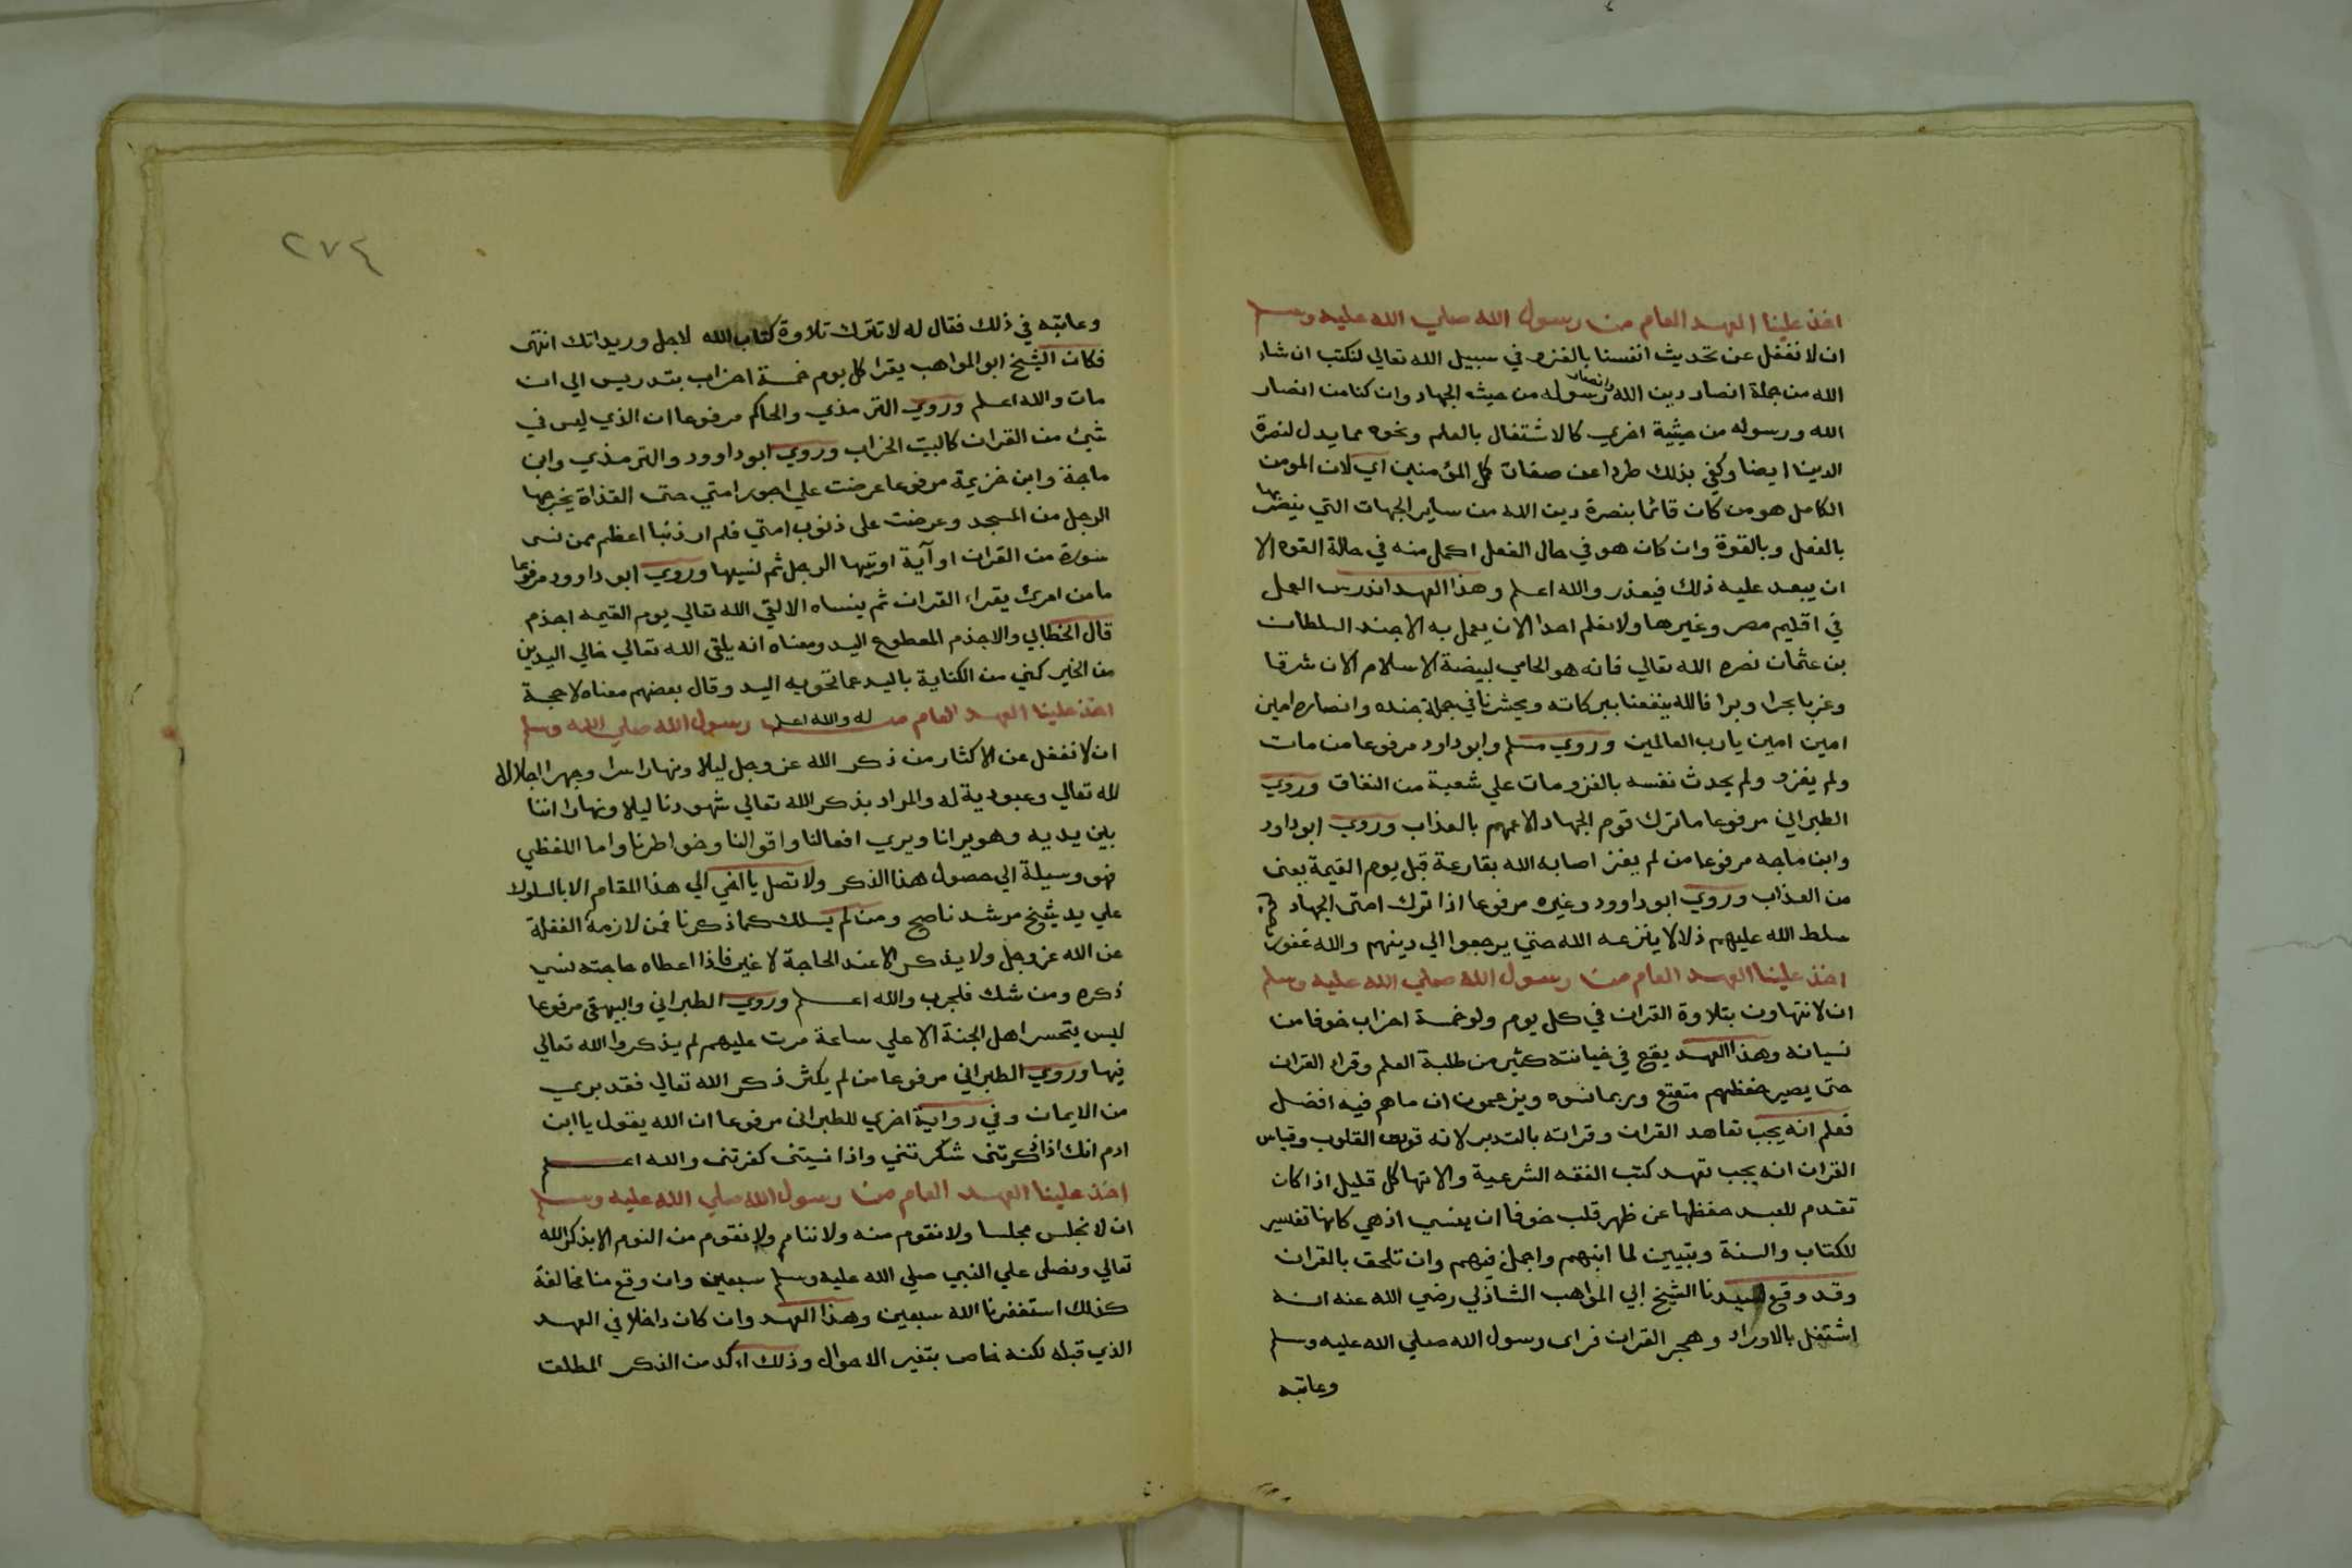 اخذ علينا العهد العام من رسول الله صلي الله عليه وسلم
ان لا نغفل عن تحديث انفسنا بالغزو في سبيل الله تعالي لنكتب ان شاء
الله من جملة انصار دين الله وانصار رسوله من حيث الجهاد وان كنا من انصار
الله ورسوله من حيثية اخري كالاشتغال بالعلم ونحوه مما يدل لنصرة
الدين ايضا وكفي بذلك طردا عن صفات كل المؤمنين اي لان المومن
الكامل هو من كان قائما بنصرة دين الله من سأير الجهات التي ينصر بها
بالفعل وبالقوة وان كان هو في حال الفعل اكمل منه في حالة القوه الا
ان يبعد عليه ذلك فيعذر والله اعلم وهذا العهد اندرس العمل
في اقليم مصر وغيرها ولا نعلم احدا الان يعمل به الا جند السلطان
بن عثمان نصره الله تعالي فانه هو الحامي لبيضة الاسلام الان شرقا
وغربا بحرا وبرا فالله ينفعنا ببركاته ويحشرنا في جملة جنده وانصاره امين
امين امين يارب العالمين وروي مسلم وابو داود مرفوعا من مات
ولم يغزو ولم يحدث نفسه بالغزو مات علي شعبة من النفاق وروي
الطبراني مرفوعا ما ترك قوم الجهاد الا عمهم بالعذاب وروي ابو داود
وابن ماجه مرفوعا من لم يغز اصابه الله بقارعة قبل يوم القيمة يعني
من العذاب وروي ابو داوود وغيره مرفوعا اذا ترك امتى الجهاد
سلط الله عليهم ذلا لا ينزعه الله حتي يرجعوا الي دينهم والله غفور رحيم
اخذ علينا العهد العام من رسول الله صلي الله عليه وسلم
ان لا نتهاون بتلاوة القران في كل يوم ولو خمسة احزاب خوفا من
نسيانه وهذا العهد يقع في خيانته كثير من طلبة العلم وقراء القران
حتى يصير حفظهم متقتع وربما نسوه ويزعمون ان ما هم فيه افضل
فعلم انه يجب تعاهد القران وقراته بالتدبر لانه قوت القلوب وقياس
القران انه يجب تعهد كتب الفقه الشرعية والاتها كل قليل اذا كان
تقدم للعبد حفظها عن ظهر قلب خوفا ان ينسي اذ هي كانها تفسير
للكتاب والسنة وتبيين لما ابهم واجمل فيهم وان تلحق بالقران
وقد وقع لسيدنا الشيخ ابي المواهب الشاذلي رضي الله عنه انه
اشتغل بالاوراد وهجر القران فراى رسول الله صلي الله عليه وسلم
وعاتبه
٢٧٤
وعاتبه في ذلك فقال له لا تترك تلاوة كتاب الله لاجل وريداتك انتهى
فكان الشيخ ابو المواهب يقرا كل يوم خمسة احزاب بتدريس الي ان
مات والله اعلم وروي الترمذي والحاكم مرفوعا ان الذي ليس في
شئ من القران كالبيت الخراب وروي ابو داوود والترمذي وابن
ماجة وابن خزيمة مرفوعا عرضت علي اجور امتي حتى القذاة يخرجها
الرجل من المسجد وعرضت على ذنوب امتي فلم ار ذنبا اعظم ممن نسى
سورة من القران او آية اوتيها الرجل ثم نسيها وروي ابو داوود مرفوعا
ما من امرئ يقراء القران ثم ينساه الا لقي الله تعالي يوم القيمه اجذم
قال الخطابي والاجذم المعطوع اليد ومعناه انه يلقى الله تعالي خالي اليدين
من الخير كني من الكناية باليد عما تحويه اليد وقال بعضهم معناه لا حجة
له والله اعلم
اخذ علينا العهد العام من رسول الله صلي الله وسلم
ان لا نغفل عن الاكثار من ذكر الله عز وجل ليلا ونهارا سرا وجهرا اجلالا
لله تعالي وعبودية له والمراد بذكر الله تعالي شهودنا ليلا ونهارا اننا
بين يديه وهو يرانا ويري افعالنا واقوالنا وخواطرنا واما اللفظي
فهو وسيلة الي حصول هذا الذكر ولا تصل يا اخي الي هذا المقام الا بالسلوك
علي يد شيخ مرشد ناصح ومن لم يسلك كما ذكرنا فمن لازمه الغفلة
عن الله عز وجل ولا يذكر الا عند الحاجة لا غير فاذا اعطاه حاجته نسي
ذكره ومن شك فليجرب والله اعلم وروي الطبراني والبيهقى مرفوعا
ليس يتحسر اهل الجنة الا علي ساعة مرت عليهم لم يذكروا الله تعالي
فيها وروي الطبراني مرفوعا من لم يكثر ذكر الله تعالي فقد بري
من الايمان وفي رواية اخري للطبرانى مرفوعا ان الله يقول يا ابن
ادم انك اذا ذكرتنى شكرتني واذا نسيتنى كفرتنى والله اعلم
اخذ علينا العهد العام من رسول الله صلي الله عليه وسلم
ان لا نجلس مجلسا ولا نقوم منه ولا ننام ولا نقوم من النوم الا بذكر الله
تعالي ونصلى علي النبي صلي الله عليه وسلم سبعين وان وقع منا مخالفة
كذلك استغفرنا الله سبعين وهذا العهد وان كان داخلا في العهد
الذي قبله لكنه خاص بتغير الاحوال وذلك اءكد من الذكر المطلق